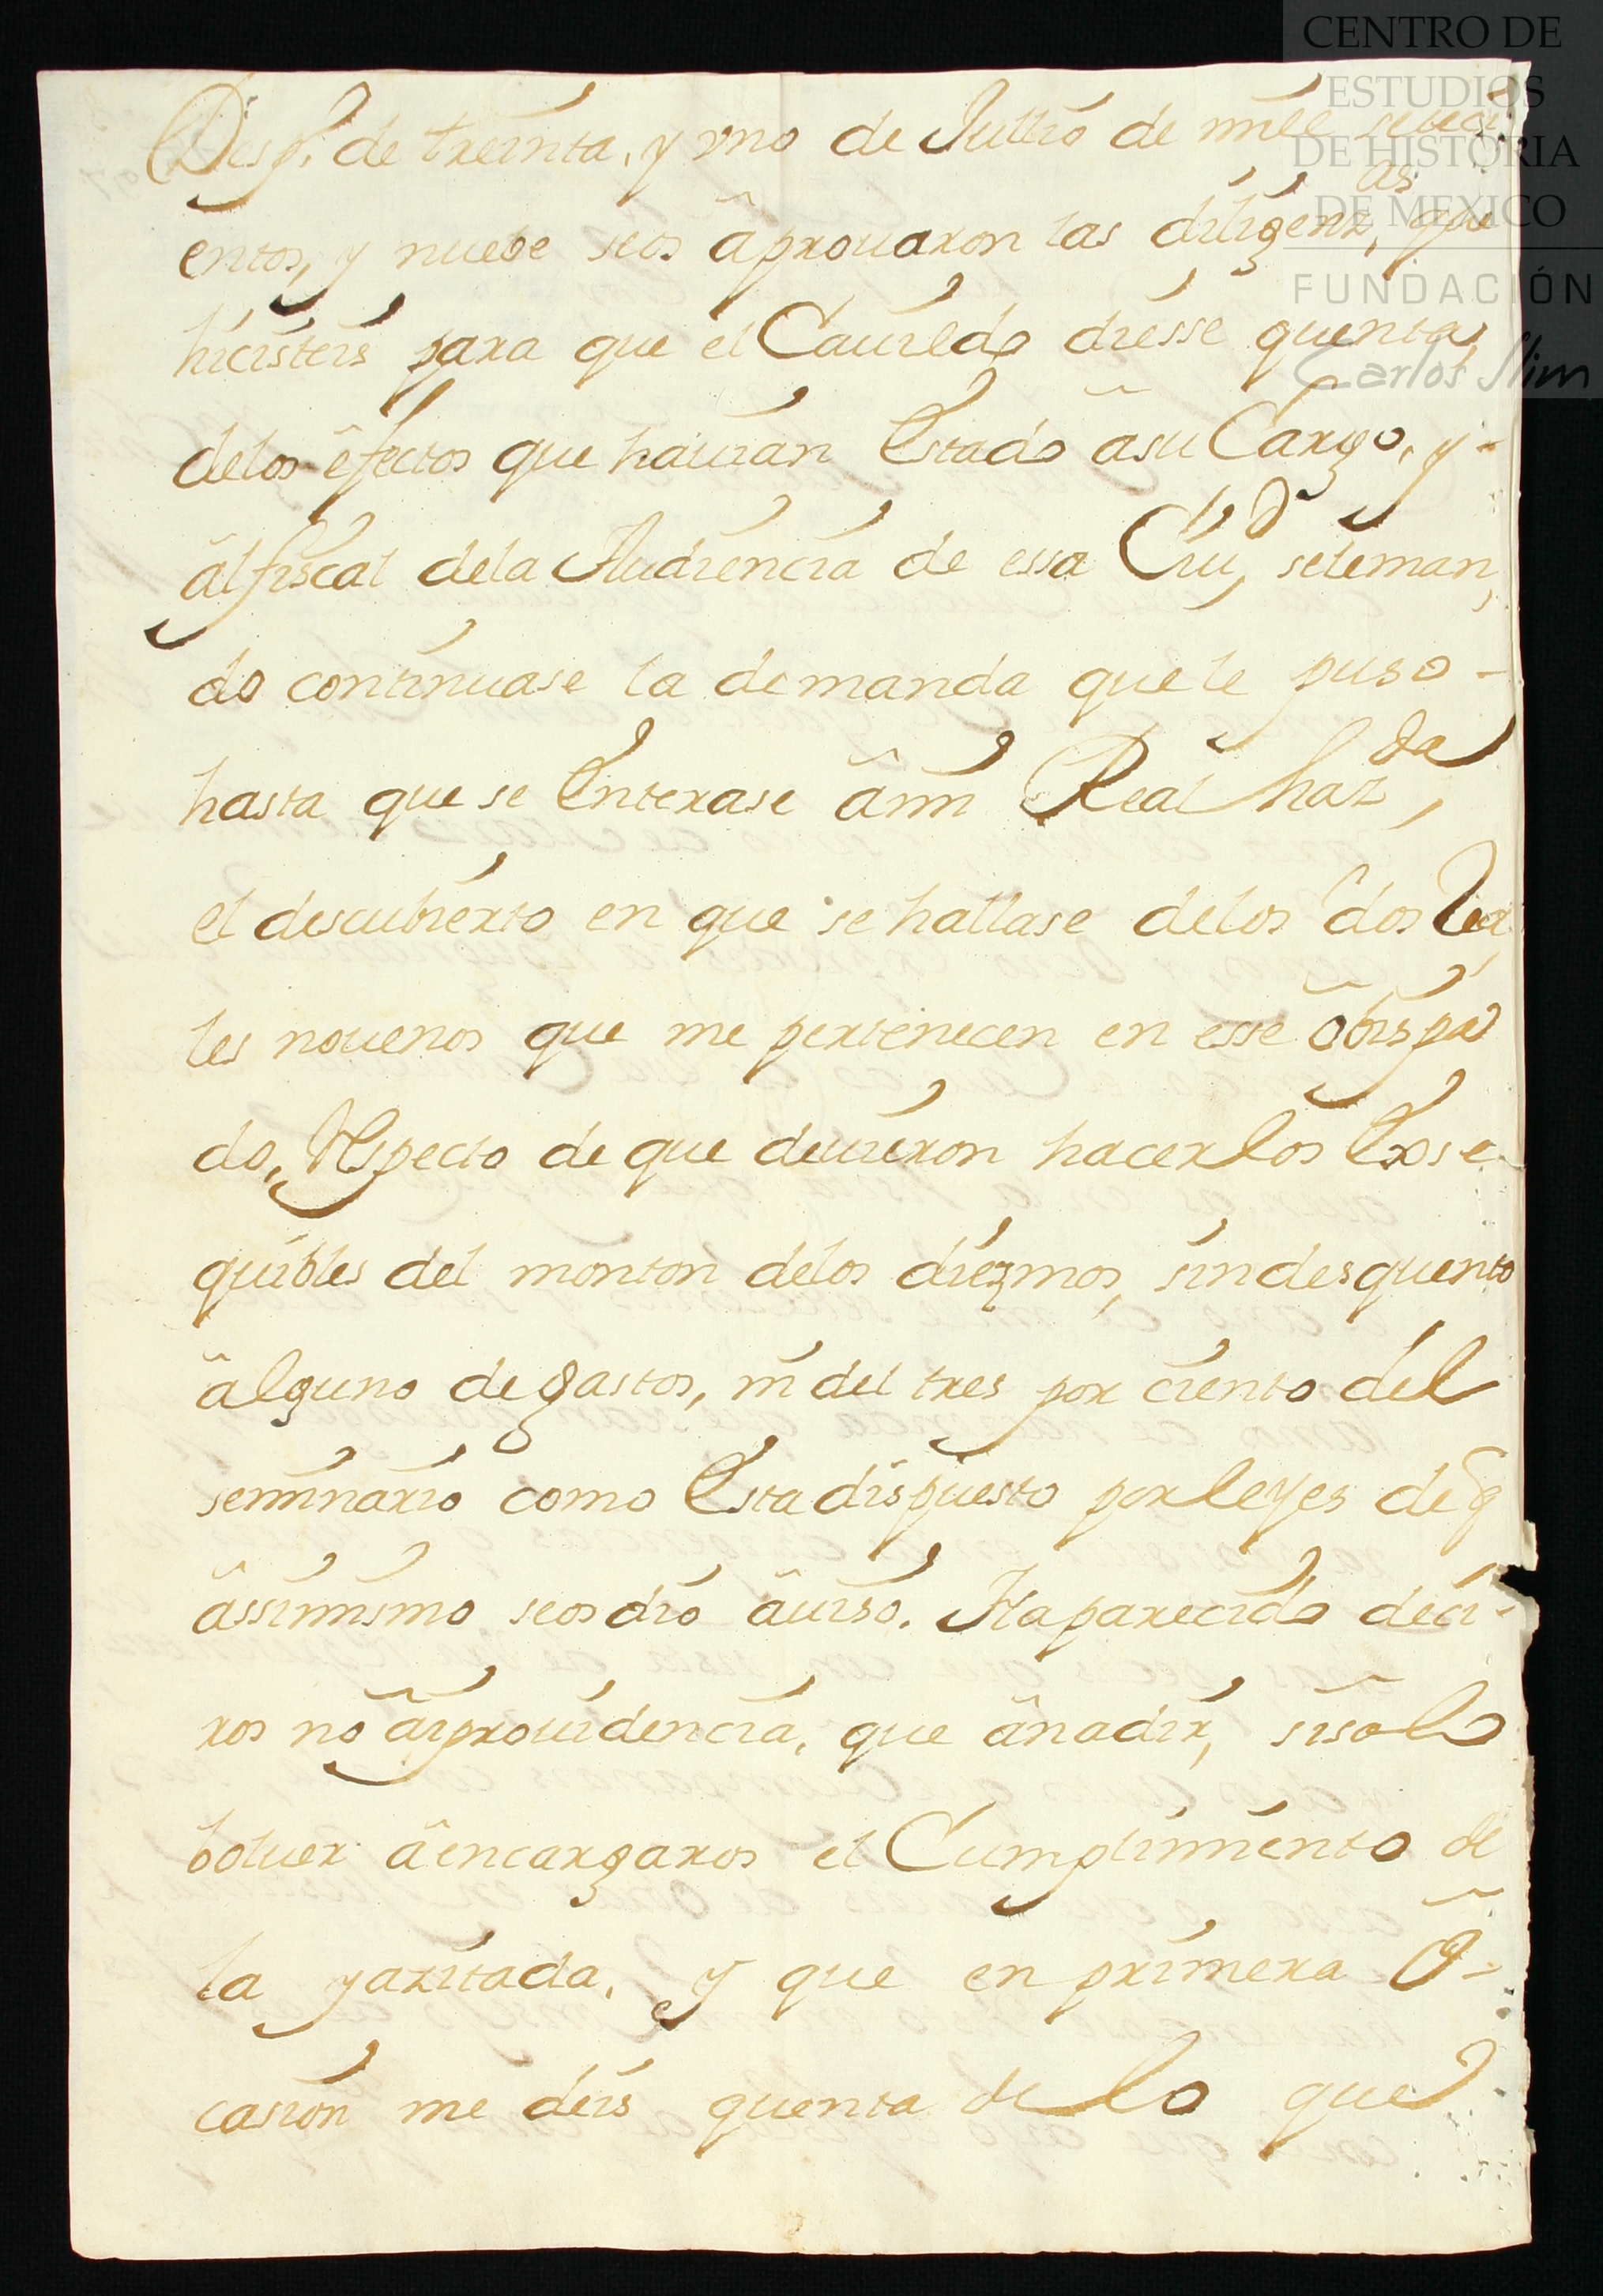 CENTRO DE
ESTUDIOS
DE HISTORIA
DE MEXICO
FUNDACIÓN
Carlos Slim
Desp. de treinta, y vno de Jullio de mill seteci
entos, y nuebe seos âprouaron las diligenz.as que
hicisteis para que el Cauildo diesse quenta
delos êfectos que hauian Estado âsu Cargo, y-
âlfiscal dela Audiencia de essa Ciud, seleman,
do continuase la demanda quele puso-
hasta que se Enterase âmi Real hazda,
el descubierto en que se hallase delos dos Rea
les nouenos que me pertenecen en esse ôbispa
do, Respecto de que deuieron hacerlos Exse
quibles del monton delos diezmos, sindesquento
âlguno degastos, ni del tres por ciento del
seminario como Esta dispuesto porleyes deq
âssimismo seosdio âuiso. Haparecido deci-
ros no âiprouidencia, que âñadir, sisolo
boluer âencargaros el Cumplimiento de
la yazitada, y que en primera ô-
casion me deis quenta de lo que